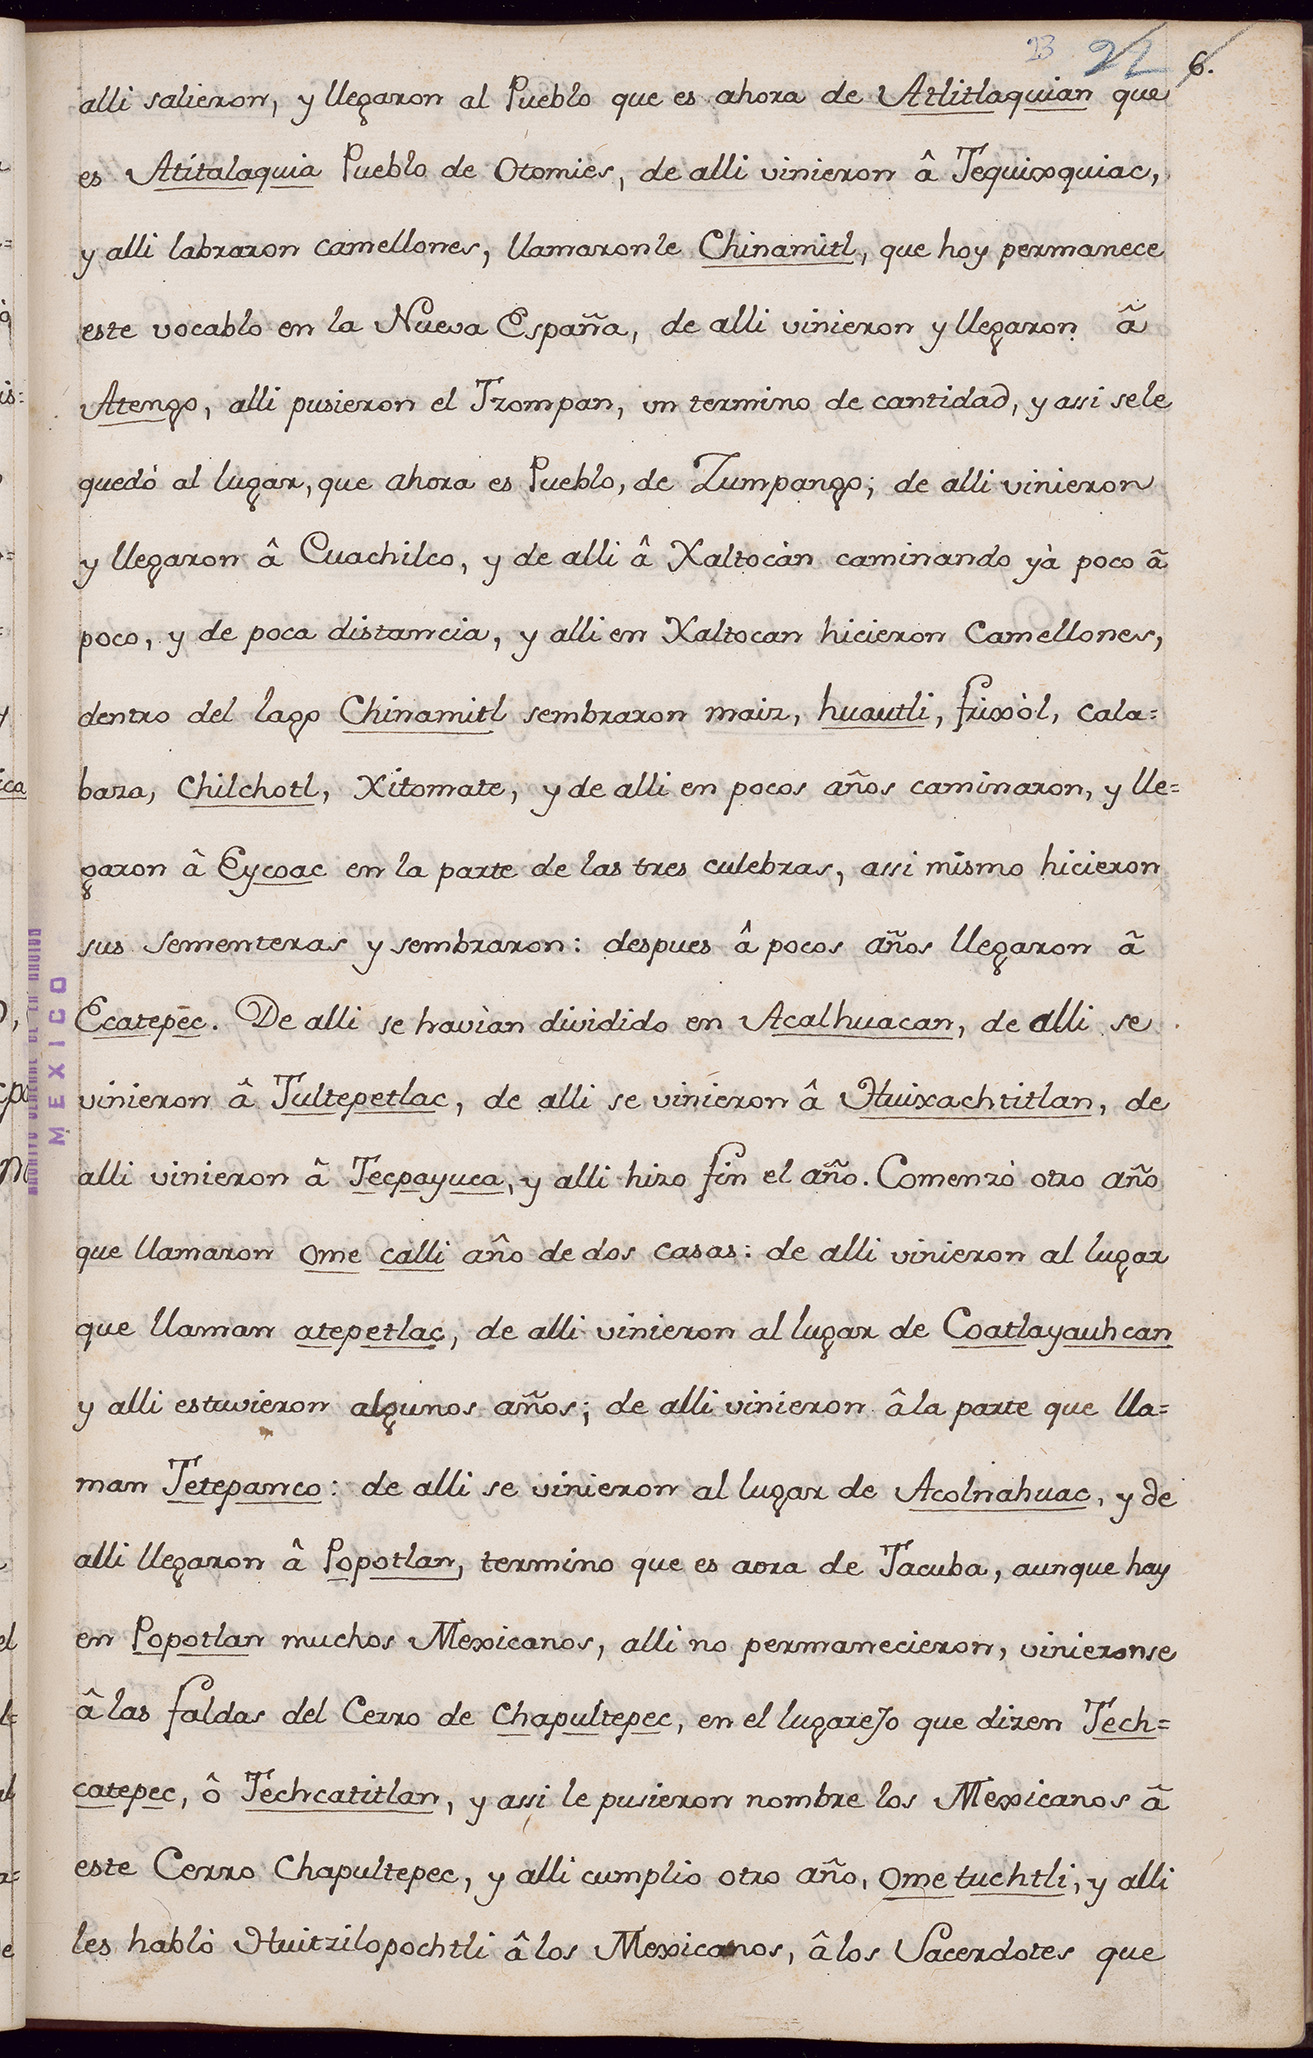 23 22 6.
alli salieron, y llegaron al Pueblo que es ahora de Atlitlaquian que
es Atitalaquia Pueblo de Otomies, de alli vinieron â Tequixquiac,
y alli labraron camellones, llamaronle Chinamitl, que hoy permanece
este vocablo en la Nueva España, de alli vinieron y llegaron â
Atengo, alli pusieron el Tzompan, un termino de cantidad, y assi sele
quedó al lugar, que ahora es Pueblo, de Zumpango; de alli vinieron
y llegaron â Cuachilco, y de alli â Xaltocàn caminando yà poco â
poco, y de poca distancia, y alli en Xaltocan hicieron Camellones,
dentro del lago Chinamitl sembraron maiz, huautli, frixòl, cala=
baza, Chilchotl, Xitomate, y de alli en pocos años caminaron, y lle=
garon â Eycoac en la parte de las tres culebras, assi mismo hicieron
sus sementeras y sembraron: despues â pocos años llegaron â
Ecatepèc. De alli se havìan dividido en Acalhuacan, de alli se
vinieron â Tultepetlac, de alli se vinieron â Huixachtitlan, de
alli vinieron â Tecpayuca, y alli hizo fin el año. Comenzò otro año
que llamaron ome calli año de dos casas: de alli vinieron al lugar
que llaman atepetlac, de alli vinieron al lugar de Coatlayauhcan
y alli estuvieron algunos años; de alli vinieron â la parte que lla=
man Tetepanco: de alli se vinieron al lugar de Acolnahuac, y de
alli llegaron â Popotlan, termino que es aora de Tacuba, aunque hay
en Popotlan muchos Mexicanos, alli no permanecieron, vinieronse
â las faldas del Cerro de Chapultepec, en el lugarejo que dizen Tech=
catepec, ô Techcatitlan, y assi le pusieron nombre los Mexicanos â
este Cerro Chapultepec, y alli cumplio otro año, Ome tuchtli, y alli
les hablò Huitzilopochtli â los Mexicanos, â los Sacerdotes que
MEXICO